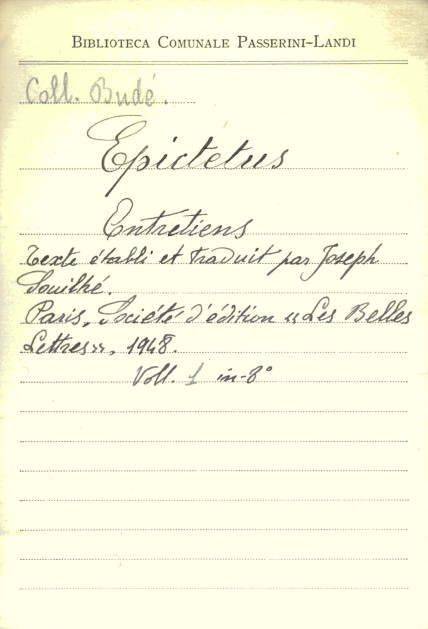 BIBLIOTECA COMUNALE PASSERINI-LANDI
Coll. Budé.
Epictetus
Entretiens
Texte établi et traduit par Joseph
Souilhé.
Paris, Société d'édition «Les Belles
Lettres», 1948.
Voll. 1 in-8°